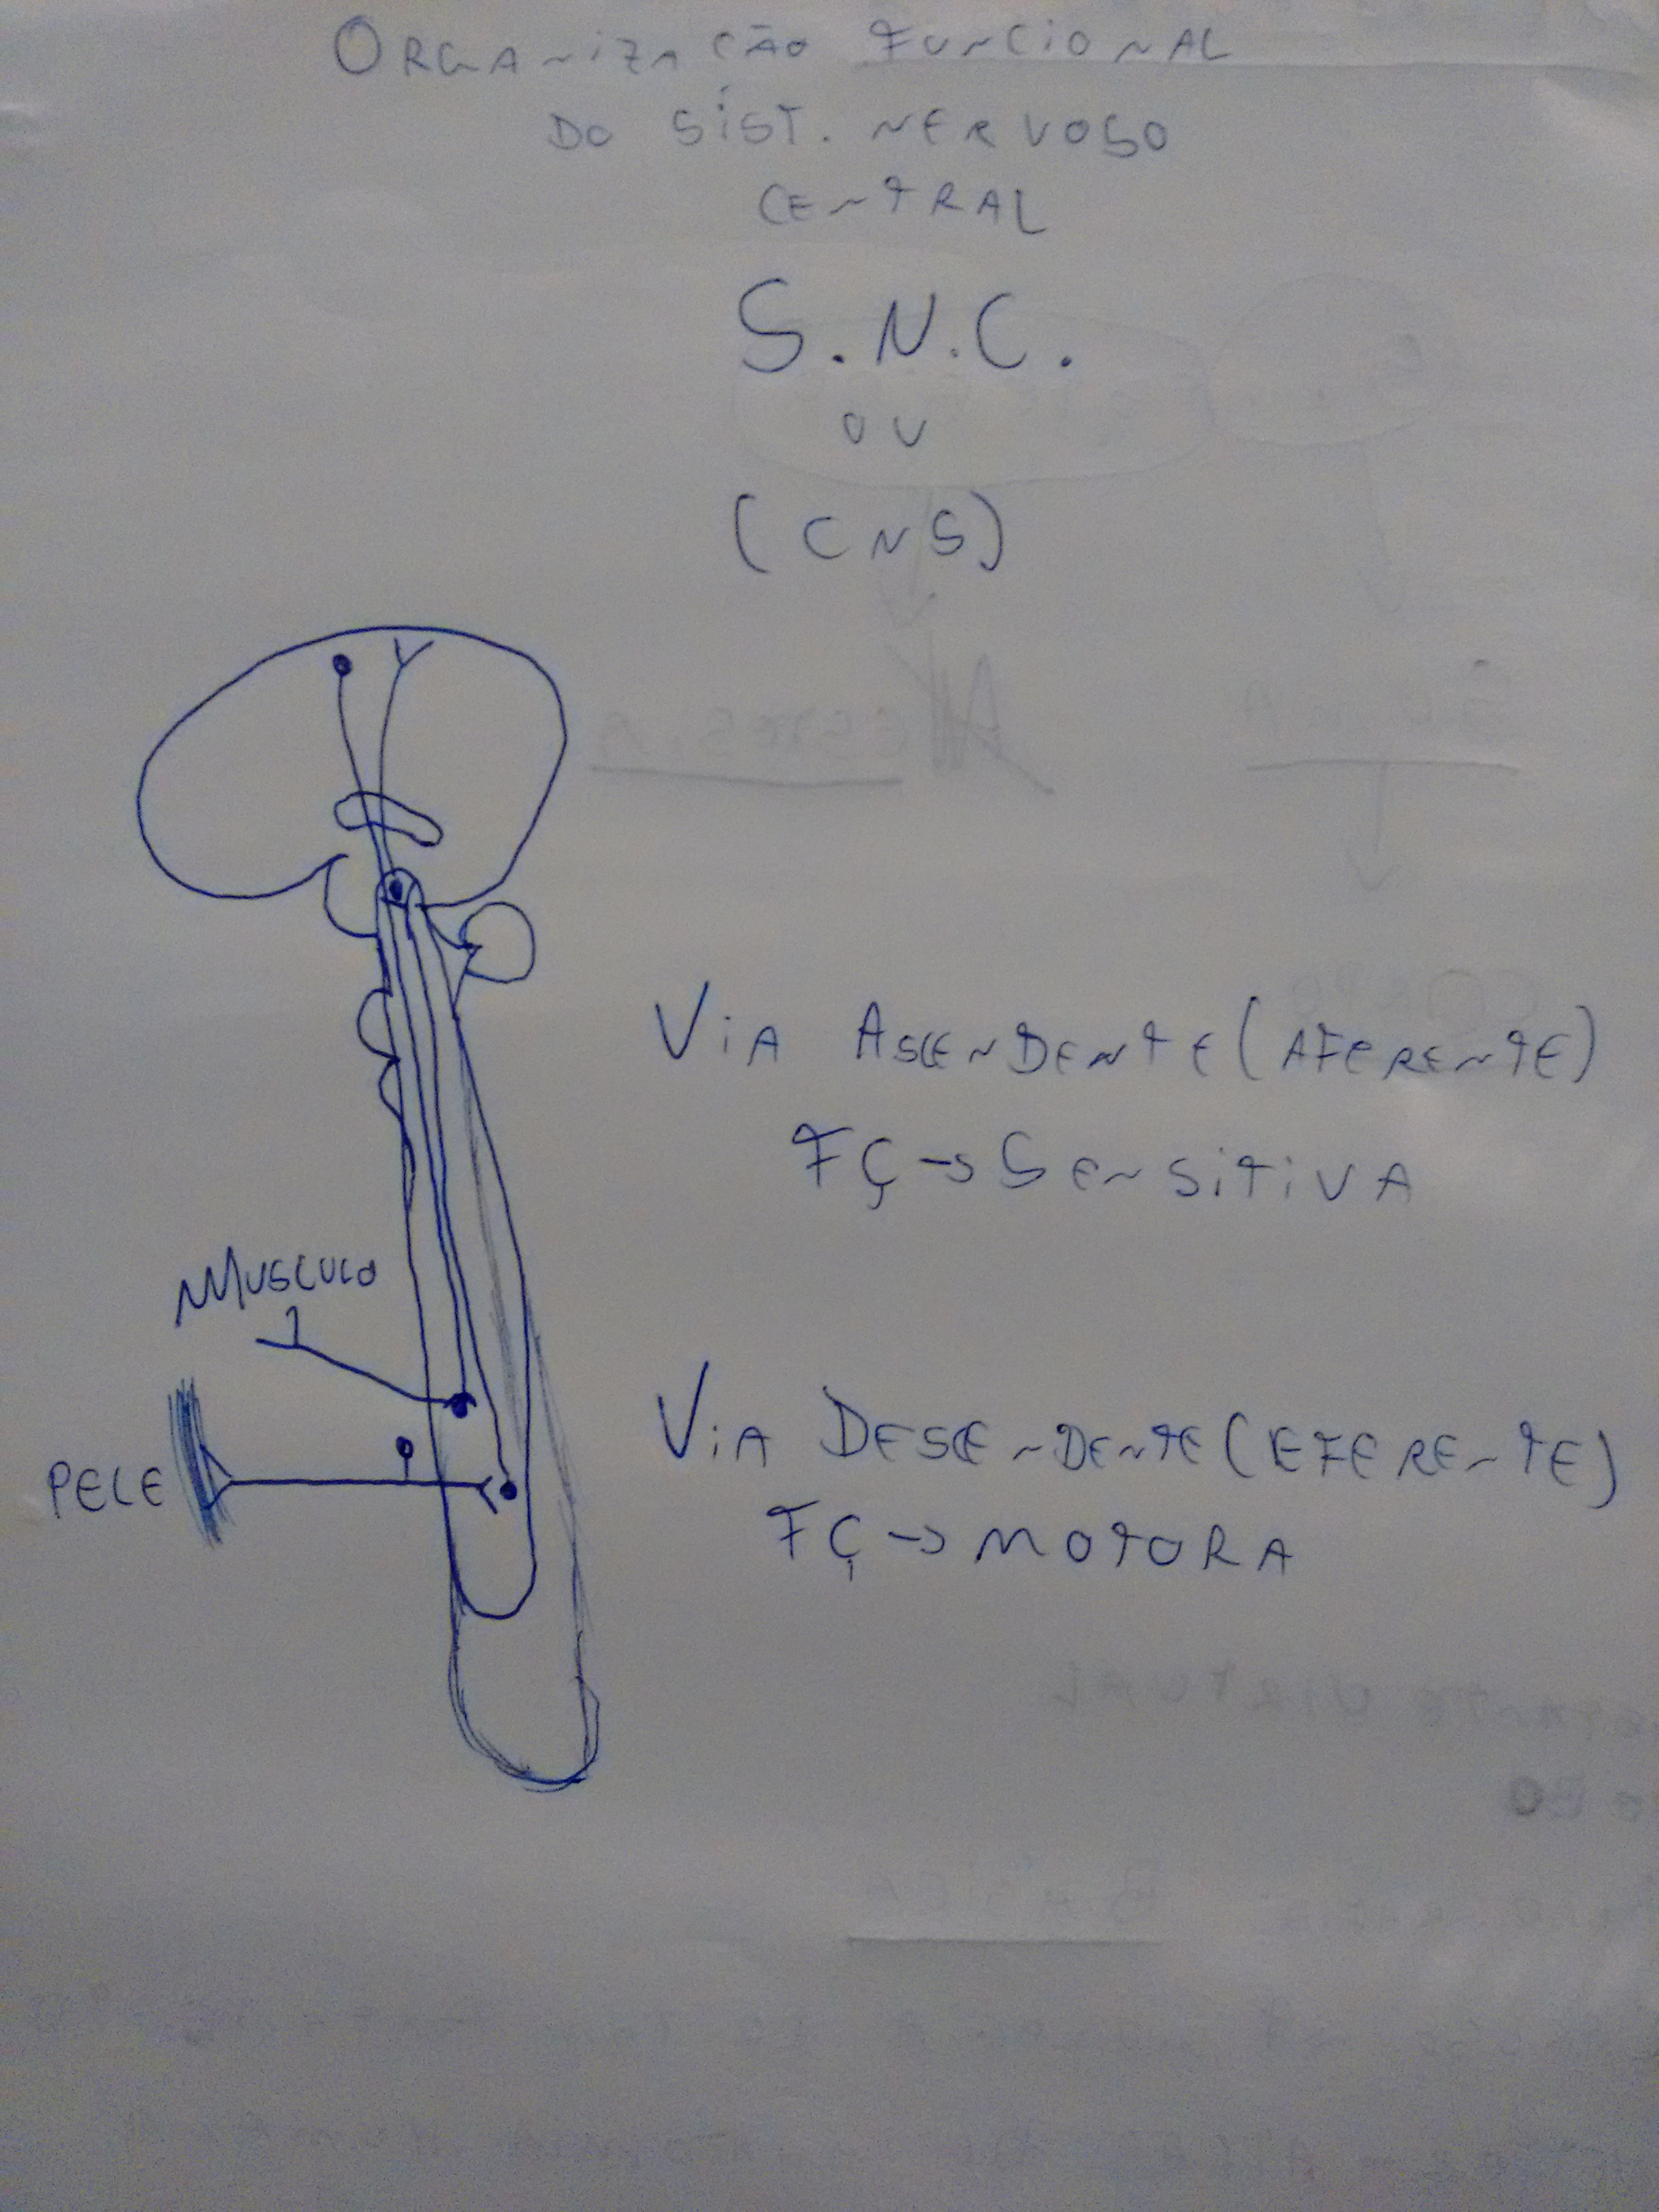 ORGANIZAÇÃO FUNCIONAL
DO SÍST. NERVOSO
CENTRAL
S.N.C.
OU
(CNS)
VIA ASCENDENTE (AFERENTE)
FÇ → SENSITIVA
MUSCULO
VIA DESCENDENTE (EFERENTE)
FÇ → MOTORA
PELE